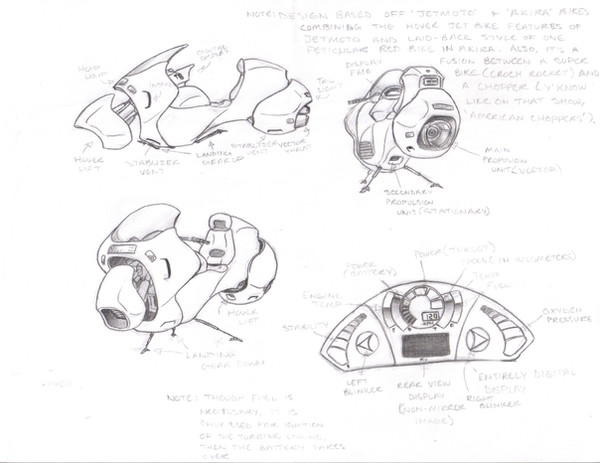 NOTE: DESIGN BASED OFF 'JETMOTO' & 'AKIRA' BIKES
COMBINING THE HOVER JET BIKE FEATURES OF
JETMOTO AND LAID-BACK STYLE OF ONE
PETICULAR RED BIKE IN AKIRA. ALSO, IT'S A
FUSION BETWEEN A SUPER
BIKE (CROCH ROCKET) AND
A CHOPPER (Y'KNOW
LIKE ON THAT SHOW,
'AMERICAN CHOPPERS').
HEAD
LIGHT
HOVER
LIFT
STABILIZER
VENT
LANDING
GEAR UP
STABILIZER
VENT
VECTOR
THRUST
TAIL
LIGHT
DISPLAY
FACE
MAIN
PROPULSION
UNIT (VECTOR)
SECONDARY
PROPULSION
UNIT (STATIONARY)
HOVER
LIFT
LANDING
GEAR DOWN
POWER
(BATTERY)
POWER (THRUST)
(IN KILOMETERS)
TEMP
FUEL
ENGINE
TEMP
OXYGEN
PRESSURE
STABILITY
120
LEFT
BLINKER
REAR VIEW
DISPLAY
(NON-MIRROR
IMAGE)
RIGHT
BLINKER
ENTIRELY DIGITAL
DISPLAY
NOTE: THOUGH FUEL IS
NECESSARY, IT IS
ONLY USED FOR IGNITION
OF THE TURBINE ENGINE,
THEN THE BATTERY TAKES
OVER